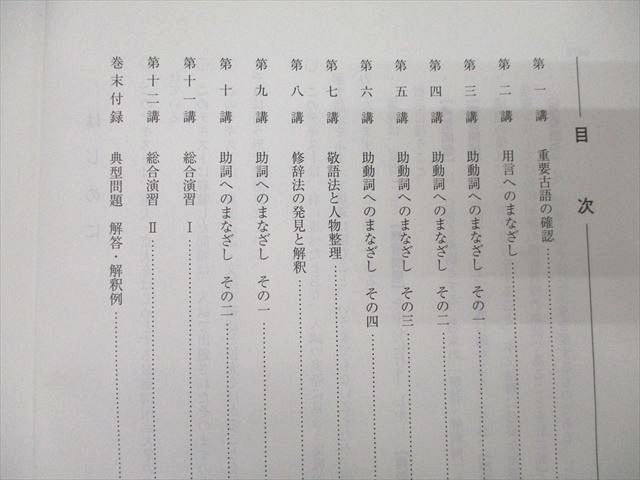 目次
第一講 重要古語の確認
第二講 用言へのまなざし
第三講 助動詞へのまなざし その一
第四講 助動詞へのまなざし その二
第五講 助動詞へのまなざし その三
第六講 助動詞へのまなざし その四
第七講 敬語法と人物整理
第八講 修辞法の発見と解釈
第九講 助詞へのまなざし その一
第十講 助詞へのまなざし その二
第十一講 総合演習 Ⅰ
第十二講 総合演習 Ⅱ
巻末付録 典型問題 解答・解釈例
はじめに